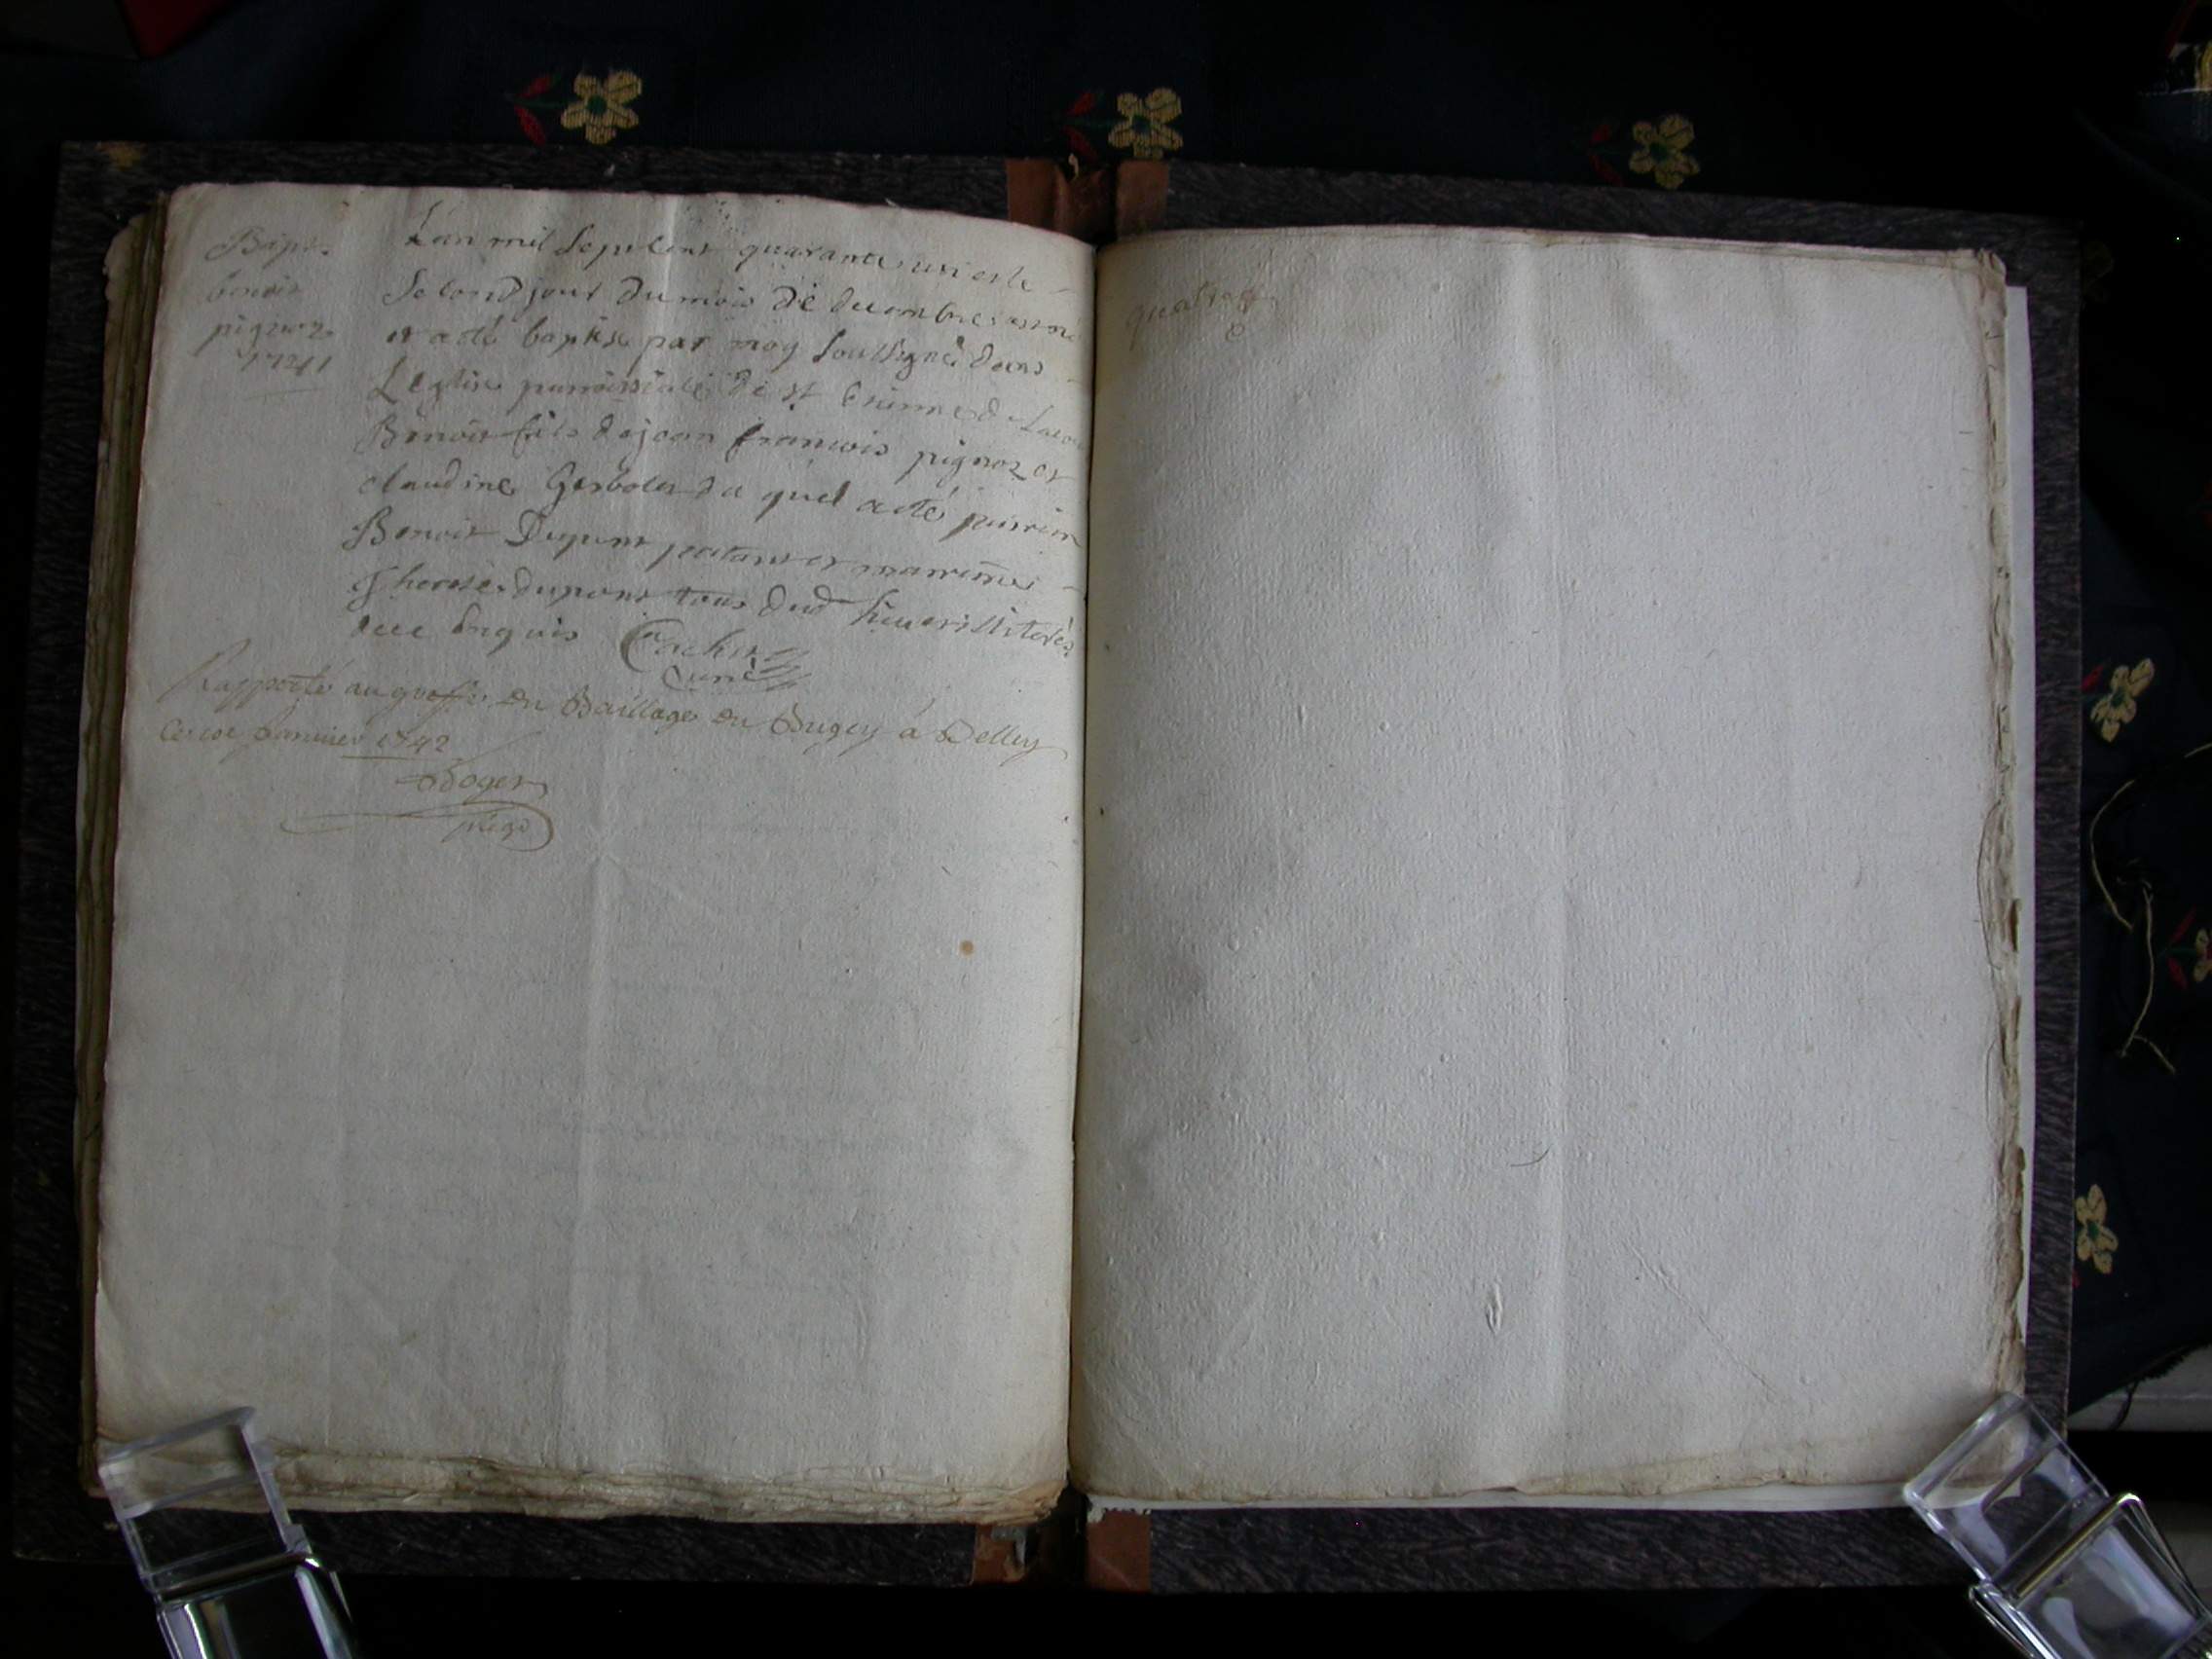 Bapt.
benoit
pignoz
1741
L'an mil sept cent quarante un et le
second jour du mois de decembre est né
et a eté baptisé par moy soussigné dans
L'eglise parroissiale de st Etienne de
Benoit fils de jean francois pignoz et
claudine Gerbolet du quel a eté parrin
Benoit Dupont et marreine
Therese dupont tous dud lieu et illiterés
de ce enquis Cachin
Curé
Rapporté au greffe du Baillage du Bugey a Belley
Ce janvier 1742
Roger
quatre